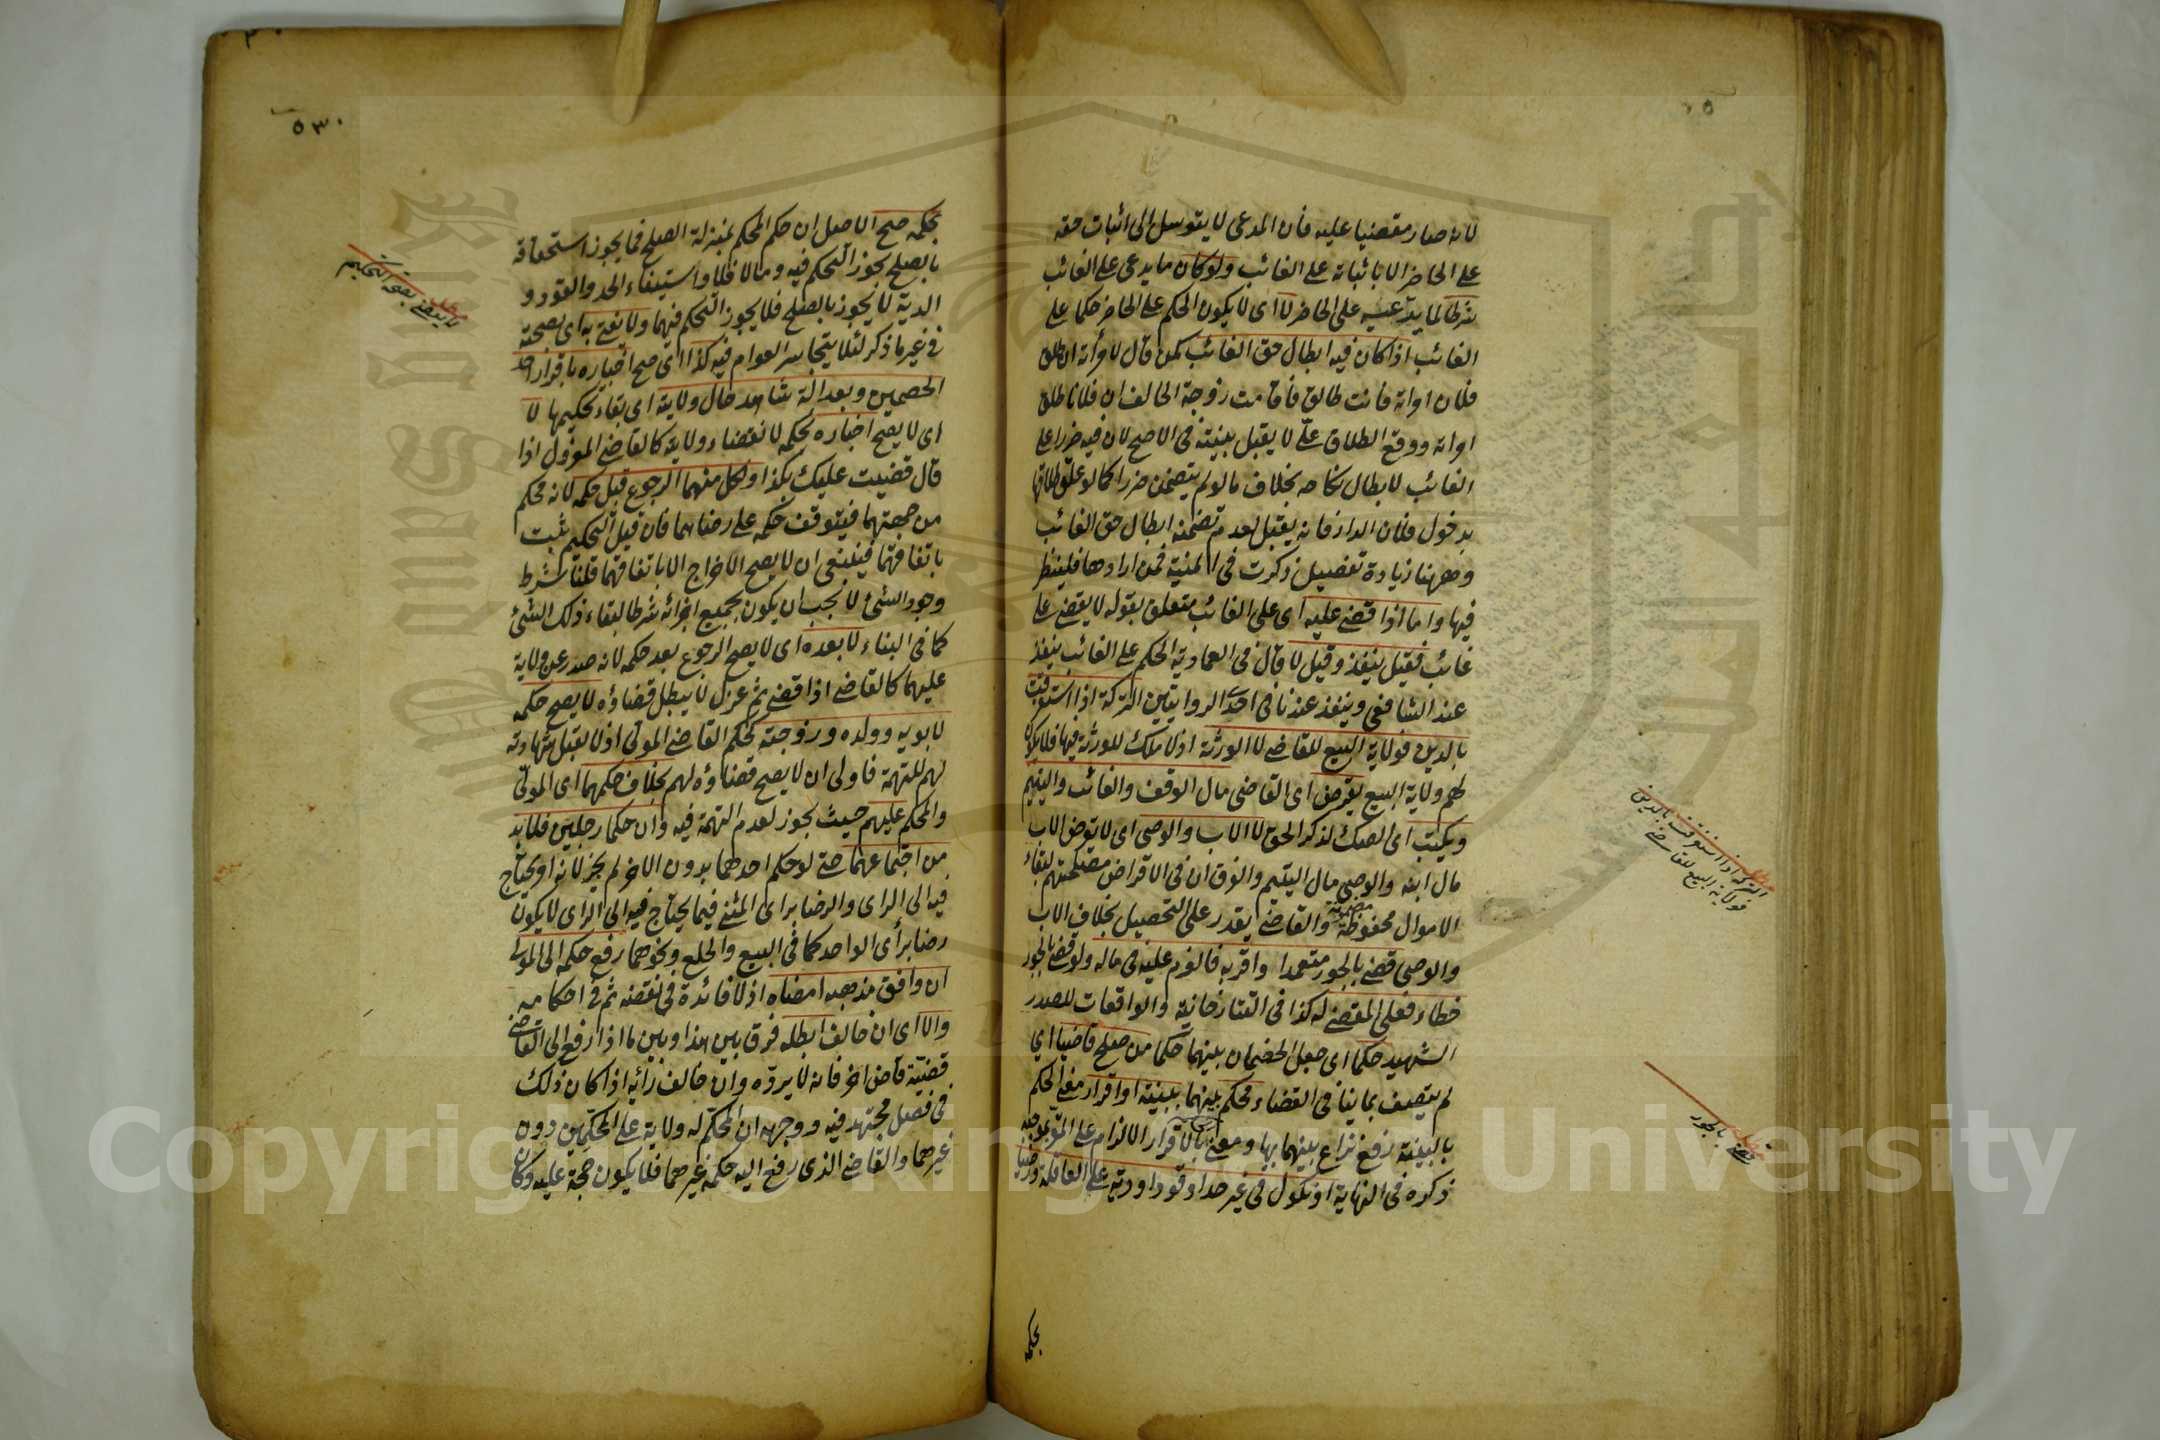 لانه صار مقضيا عليه فان المدعى لا يتوسل الى اثبات حقه
على الحاضر الا باثباته على الغائب ولو كان ما يدعى على الغائب
شرطا لما يدعيه على الحاضر لا اى لا يكون الحكم على الحاضر حكما على
الغائب اذا كان فيه ابطال حق الغائب كمن قال لامرأته ان طلق
فلان امراته فانت طالق فاقامت زوجة الحالف ان فلانا طلق
امراته ووقع الطلاق علىّ لا يقبل بينته فى الاصح لان فيه ضررا على
الغائب لابطال نكاحه بخلاف ما لو لم يتضمن ضررا كما لو علق طلاقها
بدخول فلان الدار فانه يقبل لعدم تضمنه ابطال حق الغائب
وههنا زيادة تفصيل ذكرت فى المنية فمن ارادها فلينظر
فيها واما اذا قضى عليه اى على الغائب متعلق بقوله لا يقضى على
غائب فقيل ينفذ وقيل لا قال فى العمادية الحكم على الغائب ينفذ
عند الشافعى وينفذ عندنا فى احدى الروايتين التركة اذا استغرقت
بالدين فولاية البيع للقاضى لا الورثة اذ لا ملك للورثة فيها فلا يكون
لهم ولاية البيع يقرض اى القاضى مال الوقف والغائب واليتيم
ويكتب اى الصك لذكر الحق لا الاب والوصى اى لا يقرض الاب
مال ابنه والوصى مال اليتيم والفرق ان فى الاقراض مصلحتهم لبقاء
الاموال محفوظة مضمونة والقاضى يقدر على التحصيل بخلاف الاب
والوصى قضى بالجور متعمدا واقر به فالغرم عليه فى ماله ولو قضى بالجور
خطاء فعلى المقضى له كذا فى التتارخانية والواقعات للصدر
الشهيد حكما اى جعل الخصمان بينهما حكما من صلح قاضيا اي
لم يتصف بما ينافى القضاء فحكم بينهما ببينة او اقرار معنى الحكم
بالبينة رفع نزاع بينهما بها ومعنى بالاقرار الالزام على المقر بموجبه
ذكره فى النهاية او نكول فى غير حد او قود او دية على العاقلة ورضيا
بحكمه
التركة اذا استغرقت بالدين
فولاية البيع للقاضى
قضى بالجور
٥٣٠
بحكمه صح الاصل ان حكم المحكم بمنزلة الصلح فما يجوز استحقاقه
بالصلح يجوز التحكم فيه وما لا فلا واستيفاء الحد والقود و
الدية لا يجوز بالصلح فلا يجوز التحكم فيهما ولا يفتى به اى بصحته
فى غير ما ذكر لئلا يتجاسر العوام فيه كذا اى صح اخباره باقرار احد
الخصمين وبعدالة شاهد حال ولايته اى بقاء تحكيمهما لا
اى لا يصح اخباره بحكمه لانقضاء ولايته كالقاضى المعزول اذا
قال قضيت عليك بكذا ولكل منهما الرجوع قبل حكمه لانه محكم
من جهتهما فيتوقف حكمه على رضاهما فان قيل التحكيم يثبت
باتفاقهما فينبغى ان لا يصح الاخراج الا باتفاقهما قلنا شرط
وجود الشئ لا يجب ان يكون بجميع اجزائه شرطا لبقاء ذلك الشئ
كما فى البناء لا بعده اى لا يصح الرجوع بعد حكمه لانه صدر عن ولاية
عليهما كالقاضى اذا قضى ثم عزل لا يبطل قضاؤه لا يصح حكمه
لابويه وولده وزوجته كحكم القاضى المولى اذ لا تقبل شهادته
لهم للتهمة فاولى ان لا يصح قضاؤه لهم بخلاف حكمهما اى المولى
والمحكم عليهم حيث يجوز لعدم التهمة فيه وان حكما رجلين فلا بد
من اجتماعهما حتى لو حكم احدهما بدون الاخر لم يجز لانه امر يحتاج
فيه الى الراى والرضا برأى المثنى فيما يحتاج فيه الى الراى لا يكون
رضا برأى الواحد كما فى البيع والخلع ونحوهما رفع حكمه الى المولى
ان وافق مذهبه امضاه اذ لا فائدة فى نقضه ثم فى احكامه
والا اى ان خالف ابطله فرق بين هذا وبين ما اذا رفع الى القاضى
قضية قاض اخر فانه لا يردّه وان خالف رأيه اذا كان ذلك
فى فصل مجتهد فيه ووجهه ان المحكم له ولاية على المحكمين دون
غيرهما والقاضى الذى رفع اليه حكمه غيرهما فلا يكون حجة عليه وكان
لا يفتى بصحة التحكيم
Copyright © King Saud University